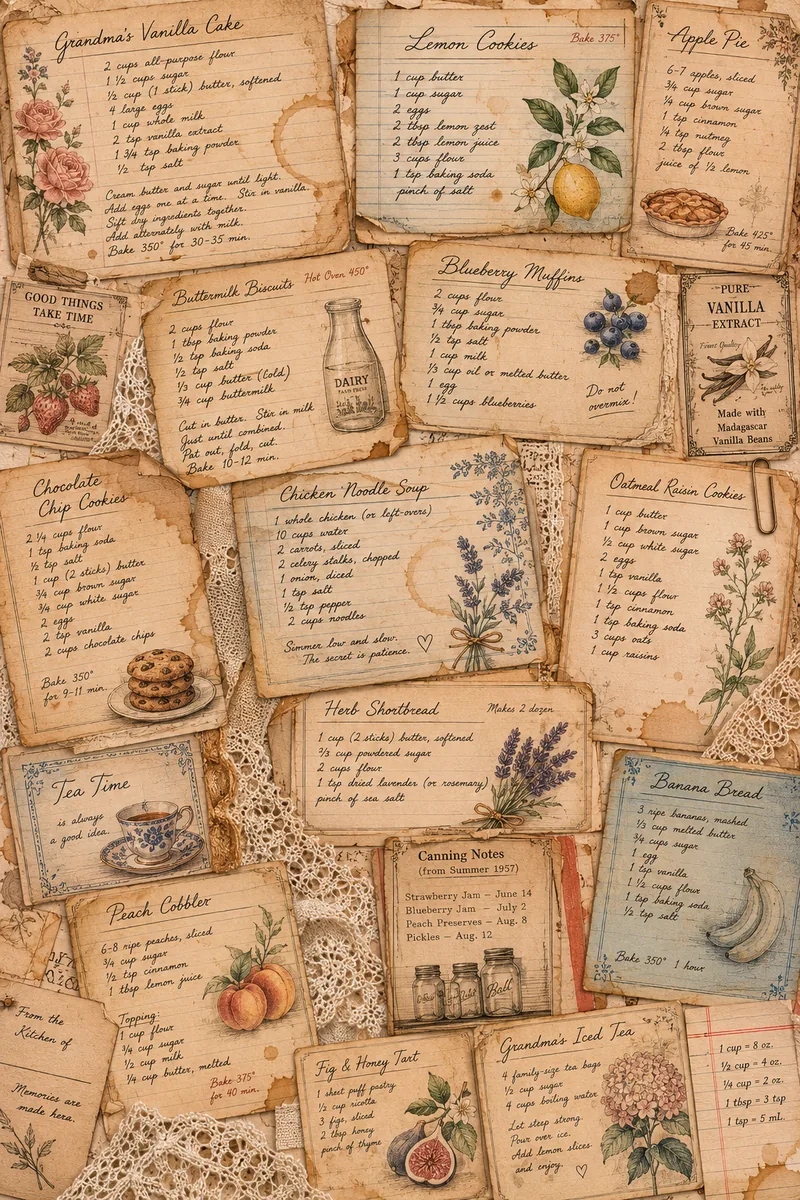 Grandma's Vanilla Cake
2 cups all-purpose flour
1 1/2 cups sugar
1/2 cup (1 stick) butter, softened
4 large eggs
1 cup whole milk
2 tsp vanilla extract
1 3/4 tsp baking powder
1/2 tsp salt
Cream butter and sugar until light.
Add eggs one at a time. Stir in vanilla.
Sift dry ingredients together.
Add alternately with milk.
Bake 350° for 30-35 min.
Lemon Cookies
Bake 375°
1 cup butter
1 cup sugar
2 eggs
2 tbsp lemon zest
2 tbsp lemon juice
3 cups flour
1 tsp baking soda
pinch of salt
Apple Pie
6-7 apples, sliced
3/4 cup sugar
1/4 cup brown sugar
1 tsp cinnamon
1/4 tsp nutmeg
2 tbsp flour
juice of 1/2 lemon
Bake 425°
for 45 min.
GOOD THINGS
TAKE TIME
Buttermilk Biscuits
Hot Oven 450°
2 cups flour
1 tbsp baking powder
1/2 tsp baking soda
1/2 tsp salt
1/3 cup butter (cold)
3/4 cup buttermilk
Cut in butter. Stir in milk
Just until combined.
Pat out, fold, cut.
Bake 10-12 min.
DAIRY
Blueberry Muffins
2 cups flour
3/4 cup sugar
1 tbsp baking powder
1/2 tsp salt
1 cup milk
1/3 cup oil or melted butter
1 egg
1 1/2 cups blueberries
Do not
overmix!
PURE
VANILLA
EXTRACT
Quality
Made with
Madagascar
Vanilla Beans
Chocolate
Chip Cookies
2 1/4 cups flour
1 tsp baking soda
1/2 tsp salt
1 cup (2 sticks) butter
3/4 cup brown sugar
3/4 cup white sugar
2 eggs
2 tsp vanilla
2 cups chocolate chips
Bake 350°
for 9-11 min.
Chicken Noodle Soup
1 whole chicken (or left-overs)
10 cups water
2 carrots, sliced
2 celery stalks, chopped
1 onion, diced
1 tsp salt
1/2 tsp pepper
2 cups noodles
Simmer low and slow.
The secret is patience. ♡
Oatmeal Raisin Cookies
1 cup butter
1 cup brown sugar
1/2 cup white sugar
2 eggs
1 tsp vanilla
1 1/2 cups flour
1 tsp cinnamon
1 tsp baking soda
3 cups oats
1 cup raisins
Herb Shortbread
Makes 2 dozen
1 cup (2 sticks) butter, softened
2/3 cup powdered sugar
2 cups flour
1 tsp dried lavender (or rosemary)
pinch of sea salt
Tea Time
is always
a good idea.
Canning Notes
(from Summer 1957)
Strawberry Jam – June 14
Blueberry Jam – July 2
Peach Preserves – Aug. 8
Pickles – Aug. 12
Ball
Banana Bread
3 ripe bananas, mashed
1/3 cup melted butter
3/4 cups sugar
1 egg
1 tsp vanilla
1 1/2 cups flour
1 tsp baking soda
1/2 tsp salt
Bake 350° 1 hour
Peach Cobbler
6-8 ripe peaches, sliced
3/4 cup sugar
1/2 tsp cinnamon
1 tbsp lemon juice
Topping:
1 cup flour
3/4 cup sugar
1/2 cup milk
1/4 cup butter, melted
Bake 375°
for 40 min.
From the
Kitchen of
Memories are
made here.
Fig & Honey Tart
1 sheet puff pastry
1/2 cup ricotta
3 figs, sliced
2 tbsp honey
pinch of thyme
Grandma's Iced Tea
4 family-size tea bags
1/2 cup sugar
4 cups boiling water
Let steep strong.
Pour over ice.
Add lemon slices.
and enjoy. ♡
1 cup = 8 oz.
1/2 cup = 4 oz.
1/4 cup = 2 oz.
1 tbsp = 3 tsp
1 tsp = 5 mL